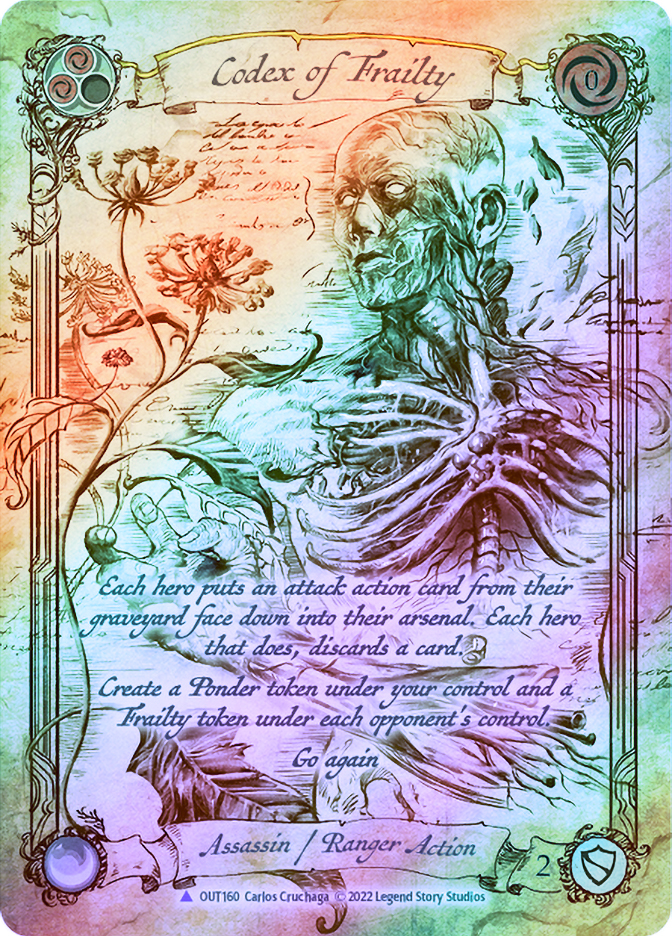 Codex of Frailty
0
Each hero puts an attack action card from their
graveyard face down into their arsenal. Each hero
that does, discards a card.
Create a Ponder token under your control and a
Frailty token under each opponent's control.
Go again
Assassin / Ranger Action
2
OUT160 Carlos Cruchaga © 2022 Legend Story Studios